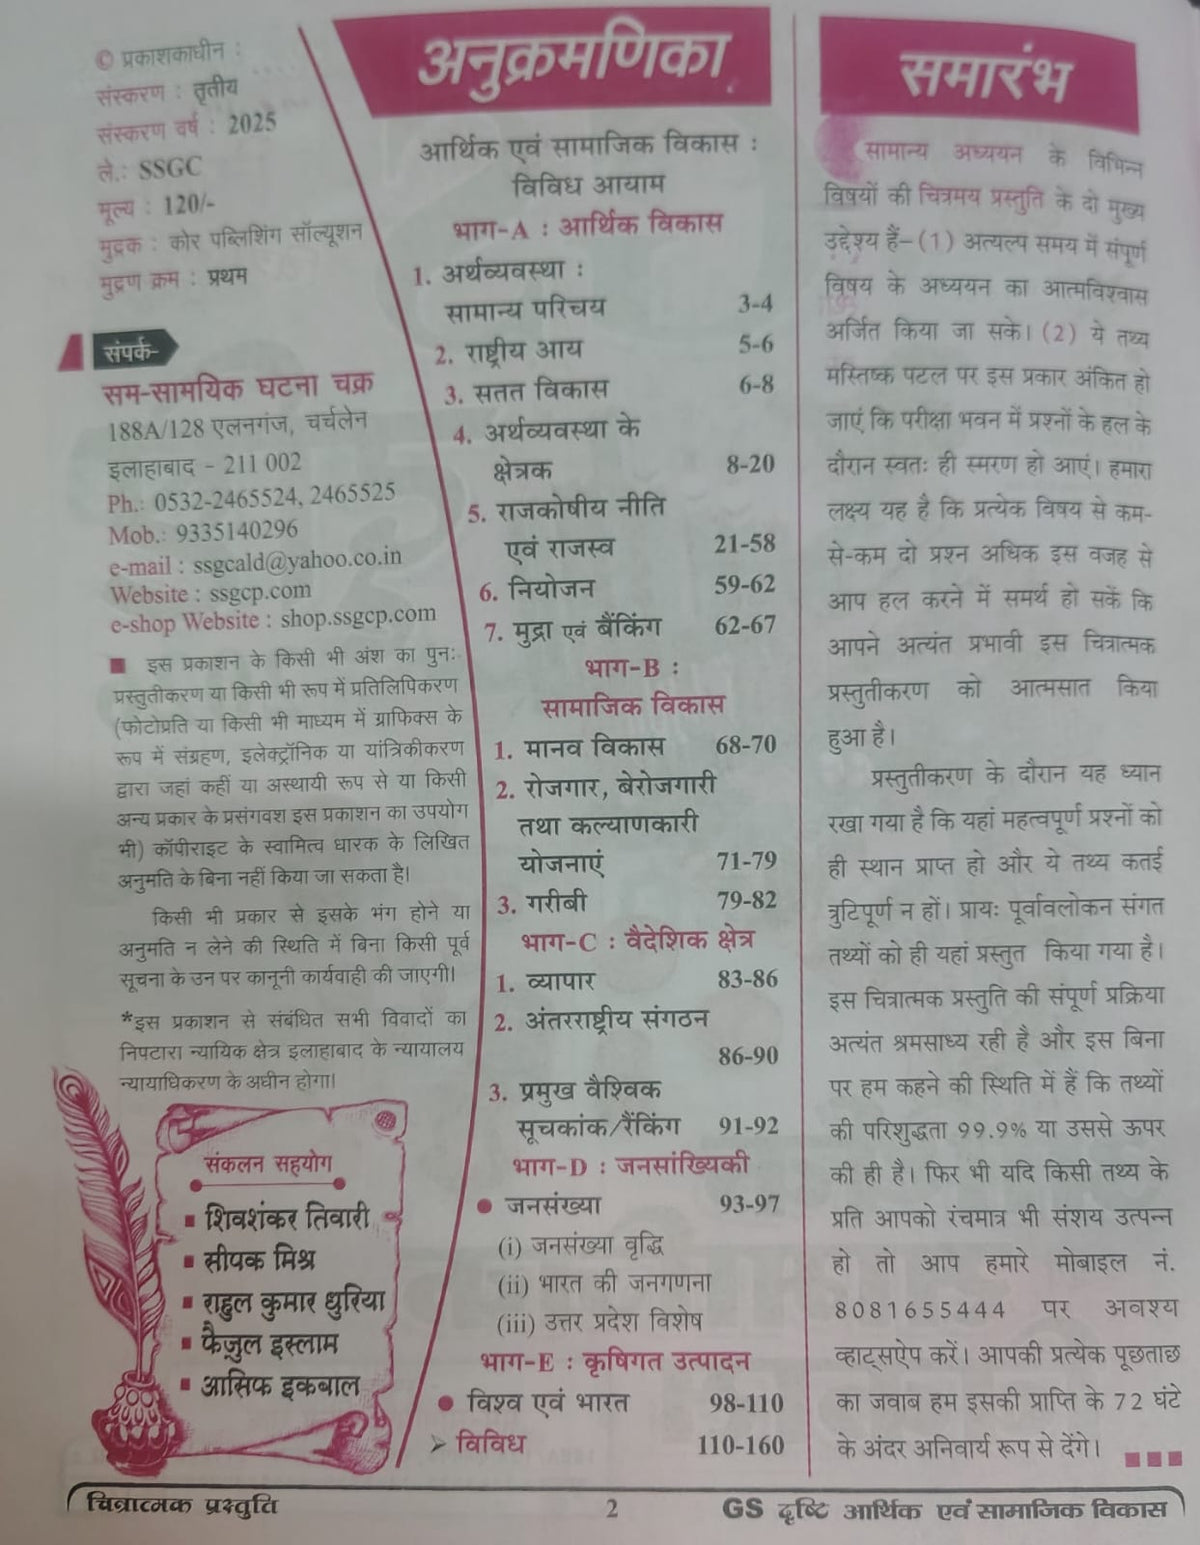 © प्रकाशकाधीन :
संस्करण : तृतीय
संस्करण वर्ष : 2025
ले.: SSGC
मूल्य : 120/-
मुद्रक : कोर पब्लिशिंग सॉल्यूशन
मुद्रण क्रम : प्रथम
संपर्क-
सम-सामयिक घटना चक्र
188A/128 एलनगंज, चर्चलेन
इलाहाबाद - 211 002
Ph.: 0532-2465524, 2465525
Mob.: 9335140296
e-mail : ssgcald@yahoo.co.in
Website : ssgcp.com
e-shop Website : shop.ssgcp.com
■ इस प्रकाशन के किसी भी अंश का पुनः
प्रस्तुतीकरण या किसी भी रूप में प्रतिलिपिकरण
(फोटोप्रति या किसी भी माध्यम में ग्राफिक्स के
रूप में संग्रहण, इलेक्ट्रॉनिक या यांत्रिकीकरण
द्वारा जहां कहीं या अस्थायी रूप से या किसी
अन्य प्रकार के प्रसंगवश इस प्रकाशन का उपयोग
भी) कॉपीराइट के स्वामित्व धारक के लिखित
अनुमति के बिना नहीं किया जा सकता है।
किसी भी प्रकार से इसके भंग होने या
अनुमति न लेने की स्थिति में बिना किसी पूर्व
सूचना के उन पर कानूनी कार्यवाही की जाएगी।
*इस प्रकाशन से संबंधित सभी विवादों का
निपटारा न्यायिक क्षेत्र इलाहाबाद के न्यायालय
न्यायाधिकरण के अधीन होगा।
संकलन सहयोग
■ शिवशंकर तिवारी
■ सीपक मिश्र
■ राहुल कुमार धुरिया
■ फैज़ुल इस्लाम
■ आसिफ इकबाल
अनुक्रमणिका
आर्थिक एवं सामाजिक विकास :
विविध आयाम
भाग-A : आर्थिक विकास
1. अर्थव्यवस्था :
सामान्य परिचय 3-4
2. राष्ट्रीय आय 5-6
3. सतत विकास 6-8
4. अर्थव्यवस्था के
क्षेत्रक 8-20
5. राजकोषीय नीति
एवं राजस्व 21-58
6. नियोजन 59-62
7. मुद्रा एवं बैंकिंग 62-67
भाग-B :
सामाजिक विकास
1. मानव विकास 68-70
2. रोजगार, बेरोजगारी
तथा कल्याणकारी
योजनाएं 71-79
3. गरीबी 79-82
भाग-C : वैदेशिक क्षेत्र
1. व्यापार 83-86
2. अंतरराष्ट्रीय संगठन
86-90
3. प्रमुख वैश्विक
सूचकांक/रैंकिंग 91-92
भाग-D : जनसांख्यिकी
● जनसंख्या 93-97
(i) जनसंख्या वृद्धि
(ii) भारत की जनगणना
(iii) उत्तर प्रदेश विशेष
भाग-E : कृषिगत उत्पादन
● विश्व एवं भारत 98-110
➢ विविध 110-160
समारंभ
सामान्य अध्ययन के विभिन्न
विषयों की चित्रमय प्रस्तुति के दो मुख्य
उद्देश्य हैं-(1) अत्यल्प समय में संपूर्ण
विषय के अध्ययन का आत्मविश्वास
अर्जित किया जा सके। (2) ये तथ्य
मस्तिष्क पटल पर इस प्रकार अंकित हो
जाएं कि परीक्षा भवन में प्रश्नों के हल के
दौरान स्वतः ही स्मरण हो आएं। हमारा
लक्ष्य यह है कि प्रत्येक विषय से कम-
से-कम दो प्रश्न अधिक इस वजह से
आप हल करने में समर्थ हो सकें कि
आपने अत्यंत प्रभावी इस चित्रात्मक
प्रस्तुतीकरण को आत्मसात किया
हुआ है।
प्रस्तुतीकरण के दौरान यह ध्यान
रखा गया है कि यहां महत्वपूर्ण प्रश्नों को
ही स्थान प्राप्त हो और ये तथ्य कतई
त्रुटिपूर्ण न हों। प्रायः पूर्वावलोकन संगत
तथ्यों को ही यहां प्रस्तुत किया गया है।
इस चित्रात्मक प्रस्तुति की संपूर्ण प्रक्रिया
अत्यंत श्रमसाध्य रही है और इस बिना
पर हम कहने की स्थिति में हैं कि तथ्यों
की परिशुद्धता 99.9% या उससे ऊपर
की ही है। फिर भी यदि किसी तथ्य के
प्रति आपको रंचमात्र भी संशय उत्पन्न
हो तो आप हमारे मोबाइल नं.
8081655444 पर अवश्य
व्हाट्सऐप करें। आपकी प्रत्येक पूछताछ
का जवाब हम इसकी प्राप्ति के 72 घंटे
के अंदर अनिवार्य रूप से देंगे।
चित्रात्मक प्रस्तुति 2 GS दृष्टि आर्थिक एवं सामाजिक विकास